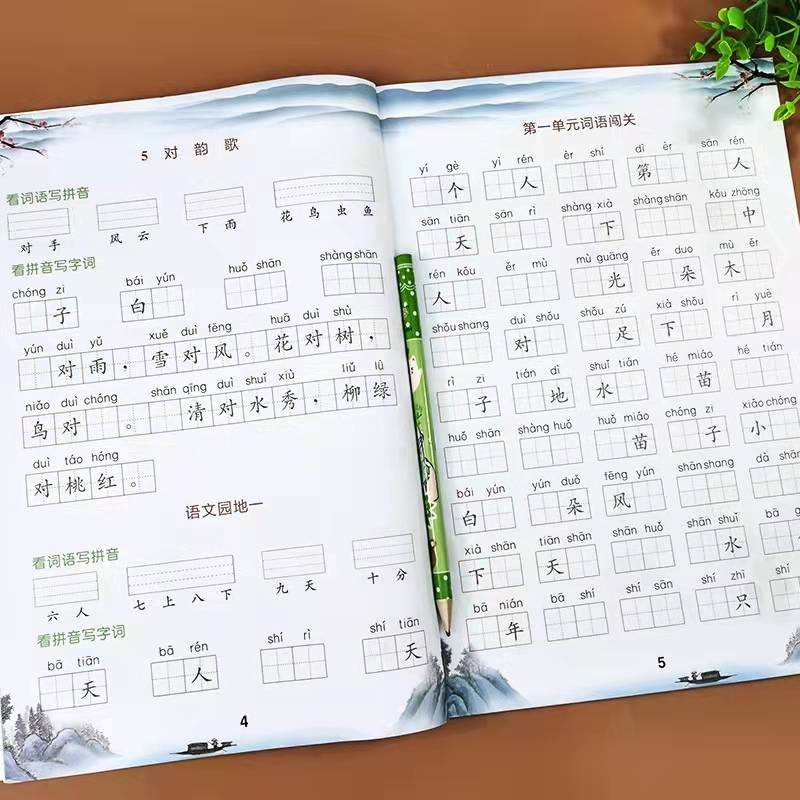 5 对 韵 歌
看词语写拼音
对 手 风 云 下 雨 花 鸟 虫 鱼
看拼音写字词
chóng zi bái yún huǒ shān shàng shān
子 白
yún duì yǔ xuě duì fēng huā duì shù
对 雨 , 雪 对 风 。 花 对 树 ,
niǎo duì chóng shān qīng duì shuǐ xiù liǔ lǜ
鸟 对 。 清 对 水 秀 , 柳 绿
duì táo hóng
对 桃 红 。
语文园地一
看词语写拼音
六 人 七 上 八 下 九 天 十 分
看拼音写字词
bā tiān bā rén shí rì shí tiān
天 人 天
4
第一单元词语闯关
yí gè yì rén èr shí dì èr sān rén
个 人 第 人
sān tiān sān rì shàng xià shàng shān kǒu zhōng
天 下 中
rén kǒu ěr mù mù guāng ěr duo mù ěr
人 光 朵 木
shǒu shang duì shǒu shǒu zú xià shǒu rì yuè
对 足 下 月
rì zi tián dì shuǐ tián hé miáo hé tián
子 地 水 苗
huǒ shān shàng huǒ huǒ miáo chóng zi xiǎo chóng
苗 子 小
bái yún yún duǒ fēng yún shān shang dà shān
白 朵 风
xià shān tiān shān shān huǒ shān shuǐ bā
下 天 水
bā nián bā shí shí sān shí zhī shí
年 只
5